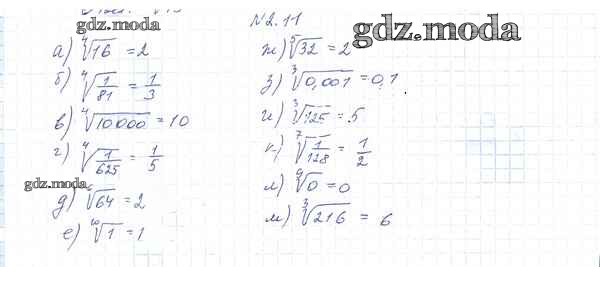 gdz.moda
№2.11
gdz.moda
а) ⁴√16 = 2
б) ⁴√(1/81) = 1/3
в) ⁴√10000 = 10
г) ⁴√(1/625) = 1/5
gdz.moda
д) ⁶√64 = 2
е) ¹⁰√1 = 1
ж) ⁵√32 = 2
з) ³√0,001 = 0,1
и) ³√125 = 5
к) ⁷√(1/128) = 1/2
л) ⁹√0 = 0
м) ³√216 = 6
gdz.moda